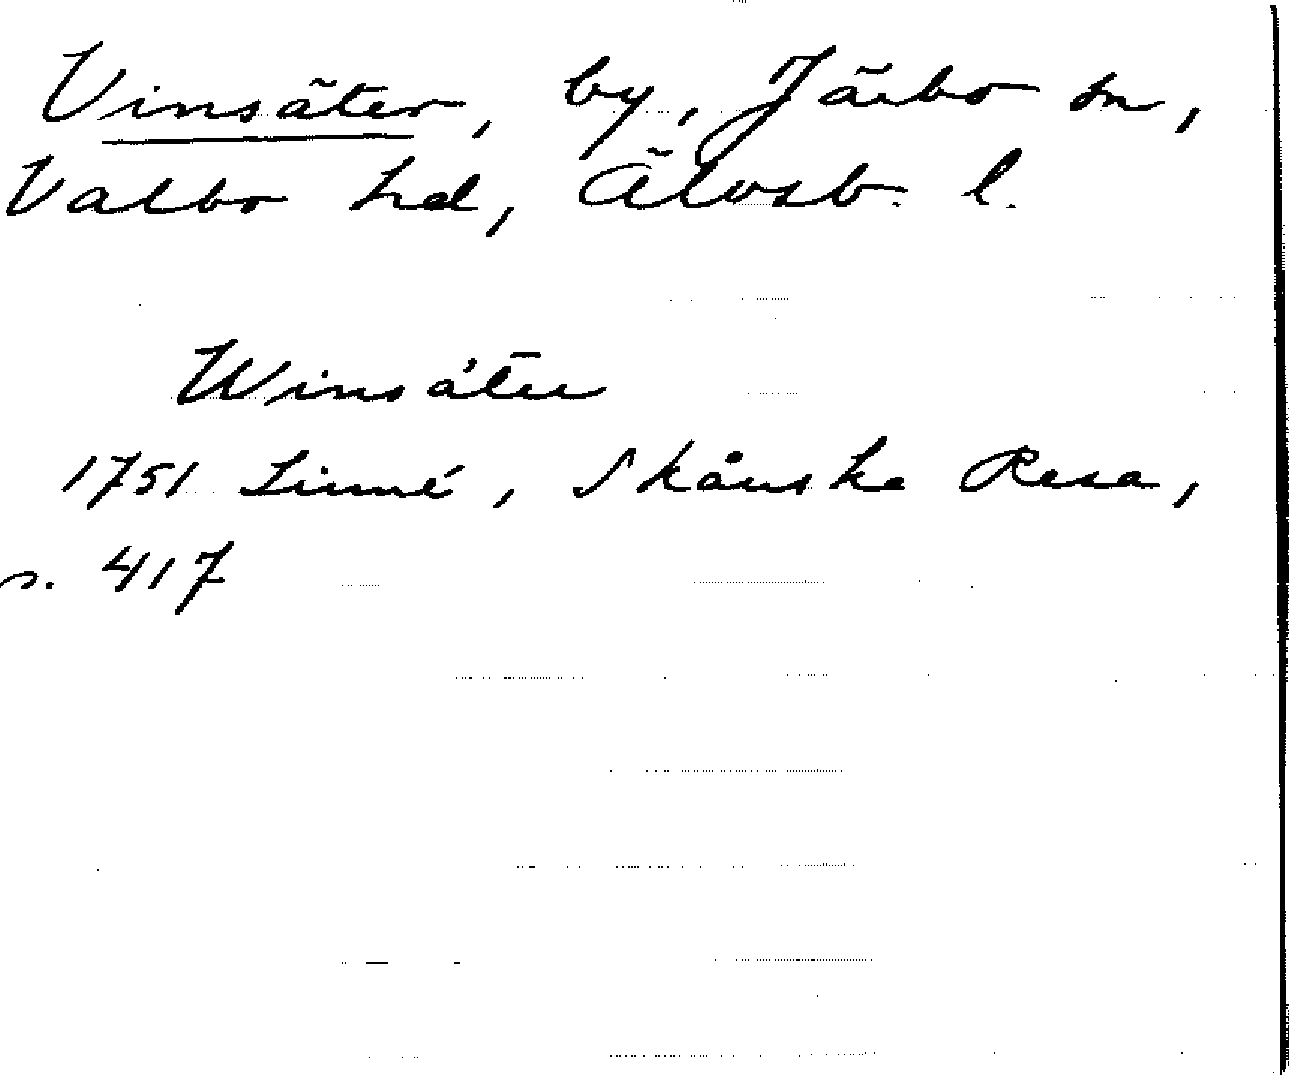 Vinsäter, by, Järbo sn,
Valbo hd, Älvsb. l.
Winsäter
1751 Linné, Skånska Resa,
s. 417